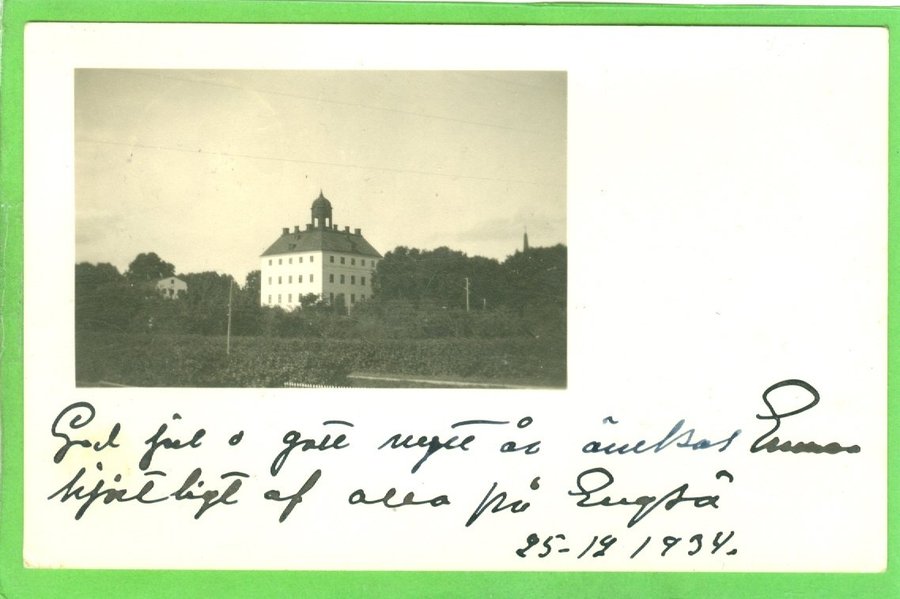 God jul o gott nytt år önskas Emma
hjärtligt af alla på Engsö
25-12 1934.